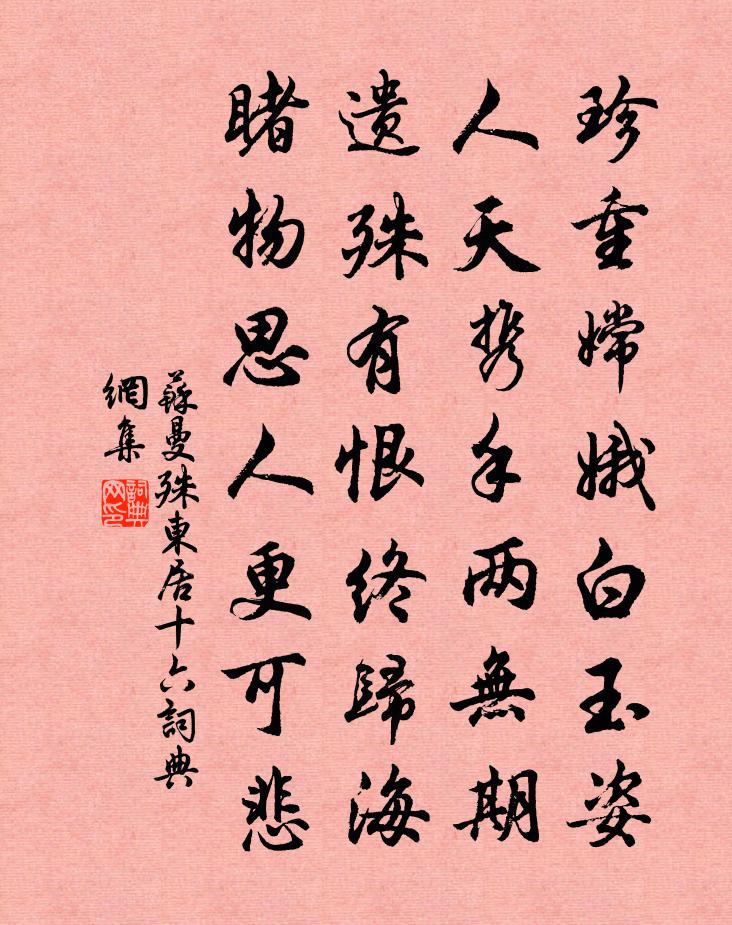 珍重嫦娥白玉姿
人天携手两無期
遗殊有恨终歸海
睹物思人更可悲
蘇曼殊東居十六詞典
網集
詞典
网印